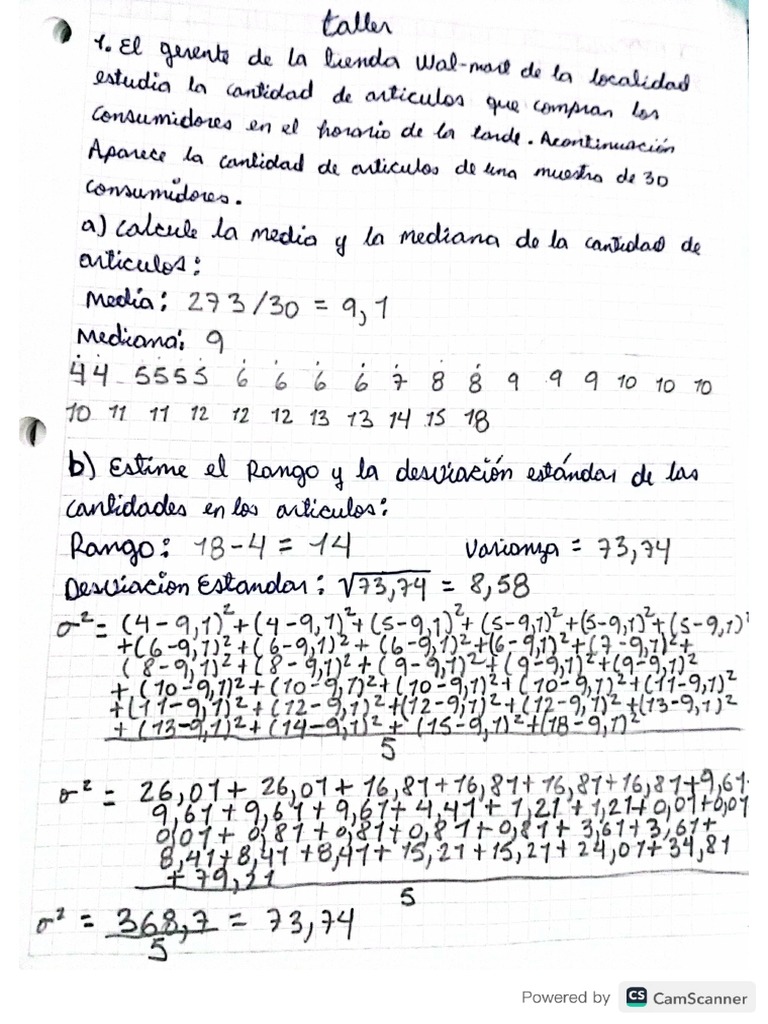 taller
1. El gerente de la tienda Wal-mart de la localidad
estudia la cantidad de articulos que compran los
consumidores en el horario de la tarde. Acontinuación
Aparece la cantidad de articulos de una muestra de 30
consumidores.
a) calcule la media y la mediana de la cantidad de
articulos:
Media: 273/30 = 9,1
Mediana: 9
4 4 5 5 5 5 6 6 6 6 7 8 8 9 9 9 10 10 10
10 11 11 12 12 12 13 13 14 15 18
b) Estime el Rango y la desviación estándar de las
cantidades en los articulos:
Rango: 18-4 = 14 Varianza = 73,74
Desviacion Estandar: √73,74 = 8,58
σ² = (4-9,1)²+(4-9,1)²+(5-9,1)²+(5-9,1)²+(5-9,1)²+(5-9,1)²
+(6-9,1)²+(6-9,1)²+(6-9,1)²+(6-9,1)²+(7-9,1)²+
(8-9,1)²+(8-9,1)²+(9-9,1)²+(9-9,1)²+(9-9,1)²
+(10-9,1)²+(10-9,1)²+(10-9,1)²+(10-9,1)²+(11-9,1)²
+(11-9,1)²+(12-9,1)²+(12-9,1)²+(12-9,1)²+(13-9,1)²
+(13-9,1)²+(14-9,1)²+(15-9,1)²+(18-9,1)²
5
σ² = 26,01+26,01+16,81+16,81+16,81+16,81+9,61
9,61+9,61+9,61+4,41+1,21+1,21+0,01+0,01
0,01+0,81+0,81+0,81+0,81+3,61+3,61+
8,41+8,41+8,41+15,21+15,21+24,01+34,81
+79,21
5
σ² = 368,7 = 73,74
5
Powered by CS CamScanner